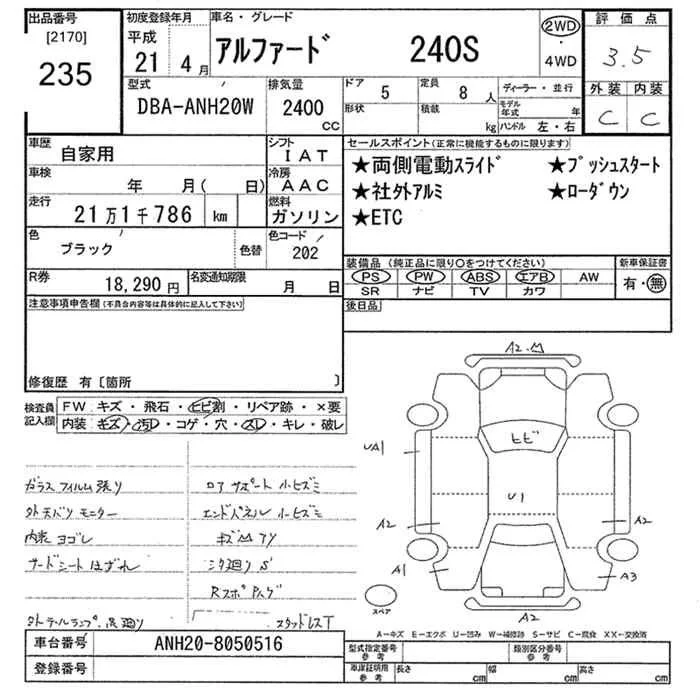 出品番号
[2170]
235
初度登録年月
平成
21 4月
車名・グレード
アルファード 240S
2WD
・
4WD
評価点
3.5
型式
DBA-ANH20W
排気量
2400
cc
ドア 5
定員 8人
形状
積載 kg
ディーラー・並行
モデル年式 年
ハンドル 左・右
外装 内装
C C
車歴
自家用
シフト
IAT
車検 年 月( 日)
冷房
AAC
走行 21万1千786 km
燃料
ガソリン
色
ブラック
色替
色コード
202
R券 18,290円
名変通知期限 月 日
セールスポイント(正常に機能するものに限ります)
★両側電動スライド ★プッシュスタート
★社外アルミ ★ローダウン
★ETC
装備品 (純正品に限り〇をつけてください)
PS PW ABS エアB AW
SR ナビ TV カワ
新車保証書
有・無
後日品
注意事項申告欄(不具合内容等は具体的に記入して下さい)
修復歴 有〔箇所 〕
検査員記入欄
FW キズ・飛石・ヒビ割・リペア跡・×要
内装 キズ・汚レ・コゲ・穴・スレ・キレ・破レ
ガラスフィルム張り
外天バリモニター
内装ヨゴレ
サードシートはずれ
ロアサポート小ヒズミ
エンドパネル小ヒズミ
キズ凹アリ
スタッドレスT
A2 凹
ヒビ
UA1
U1
A2
A2
A1
A3
A2
スペア
A-キズ E-エクボ U-凹み W-補修跡 S-サビ C-腐食 XX-交換済
車台番号 ANH20-8050516
登録番号
型式指定番号
参考
類別区分番号
参考
車庫証明用
参考
長さ cm
幅 cm
高さ cm